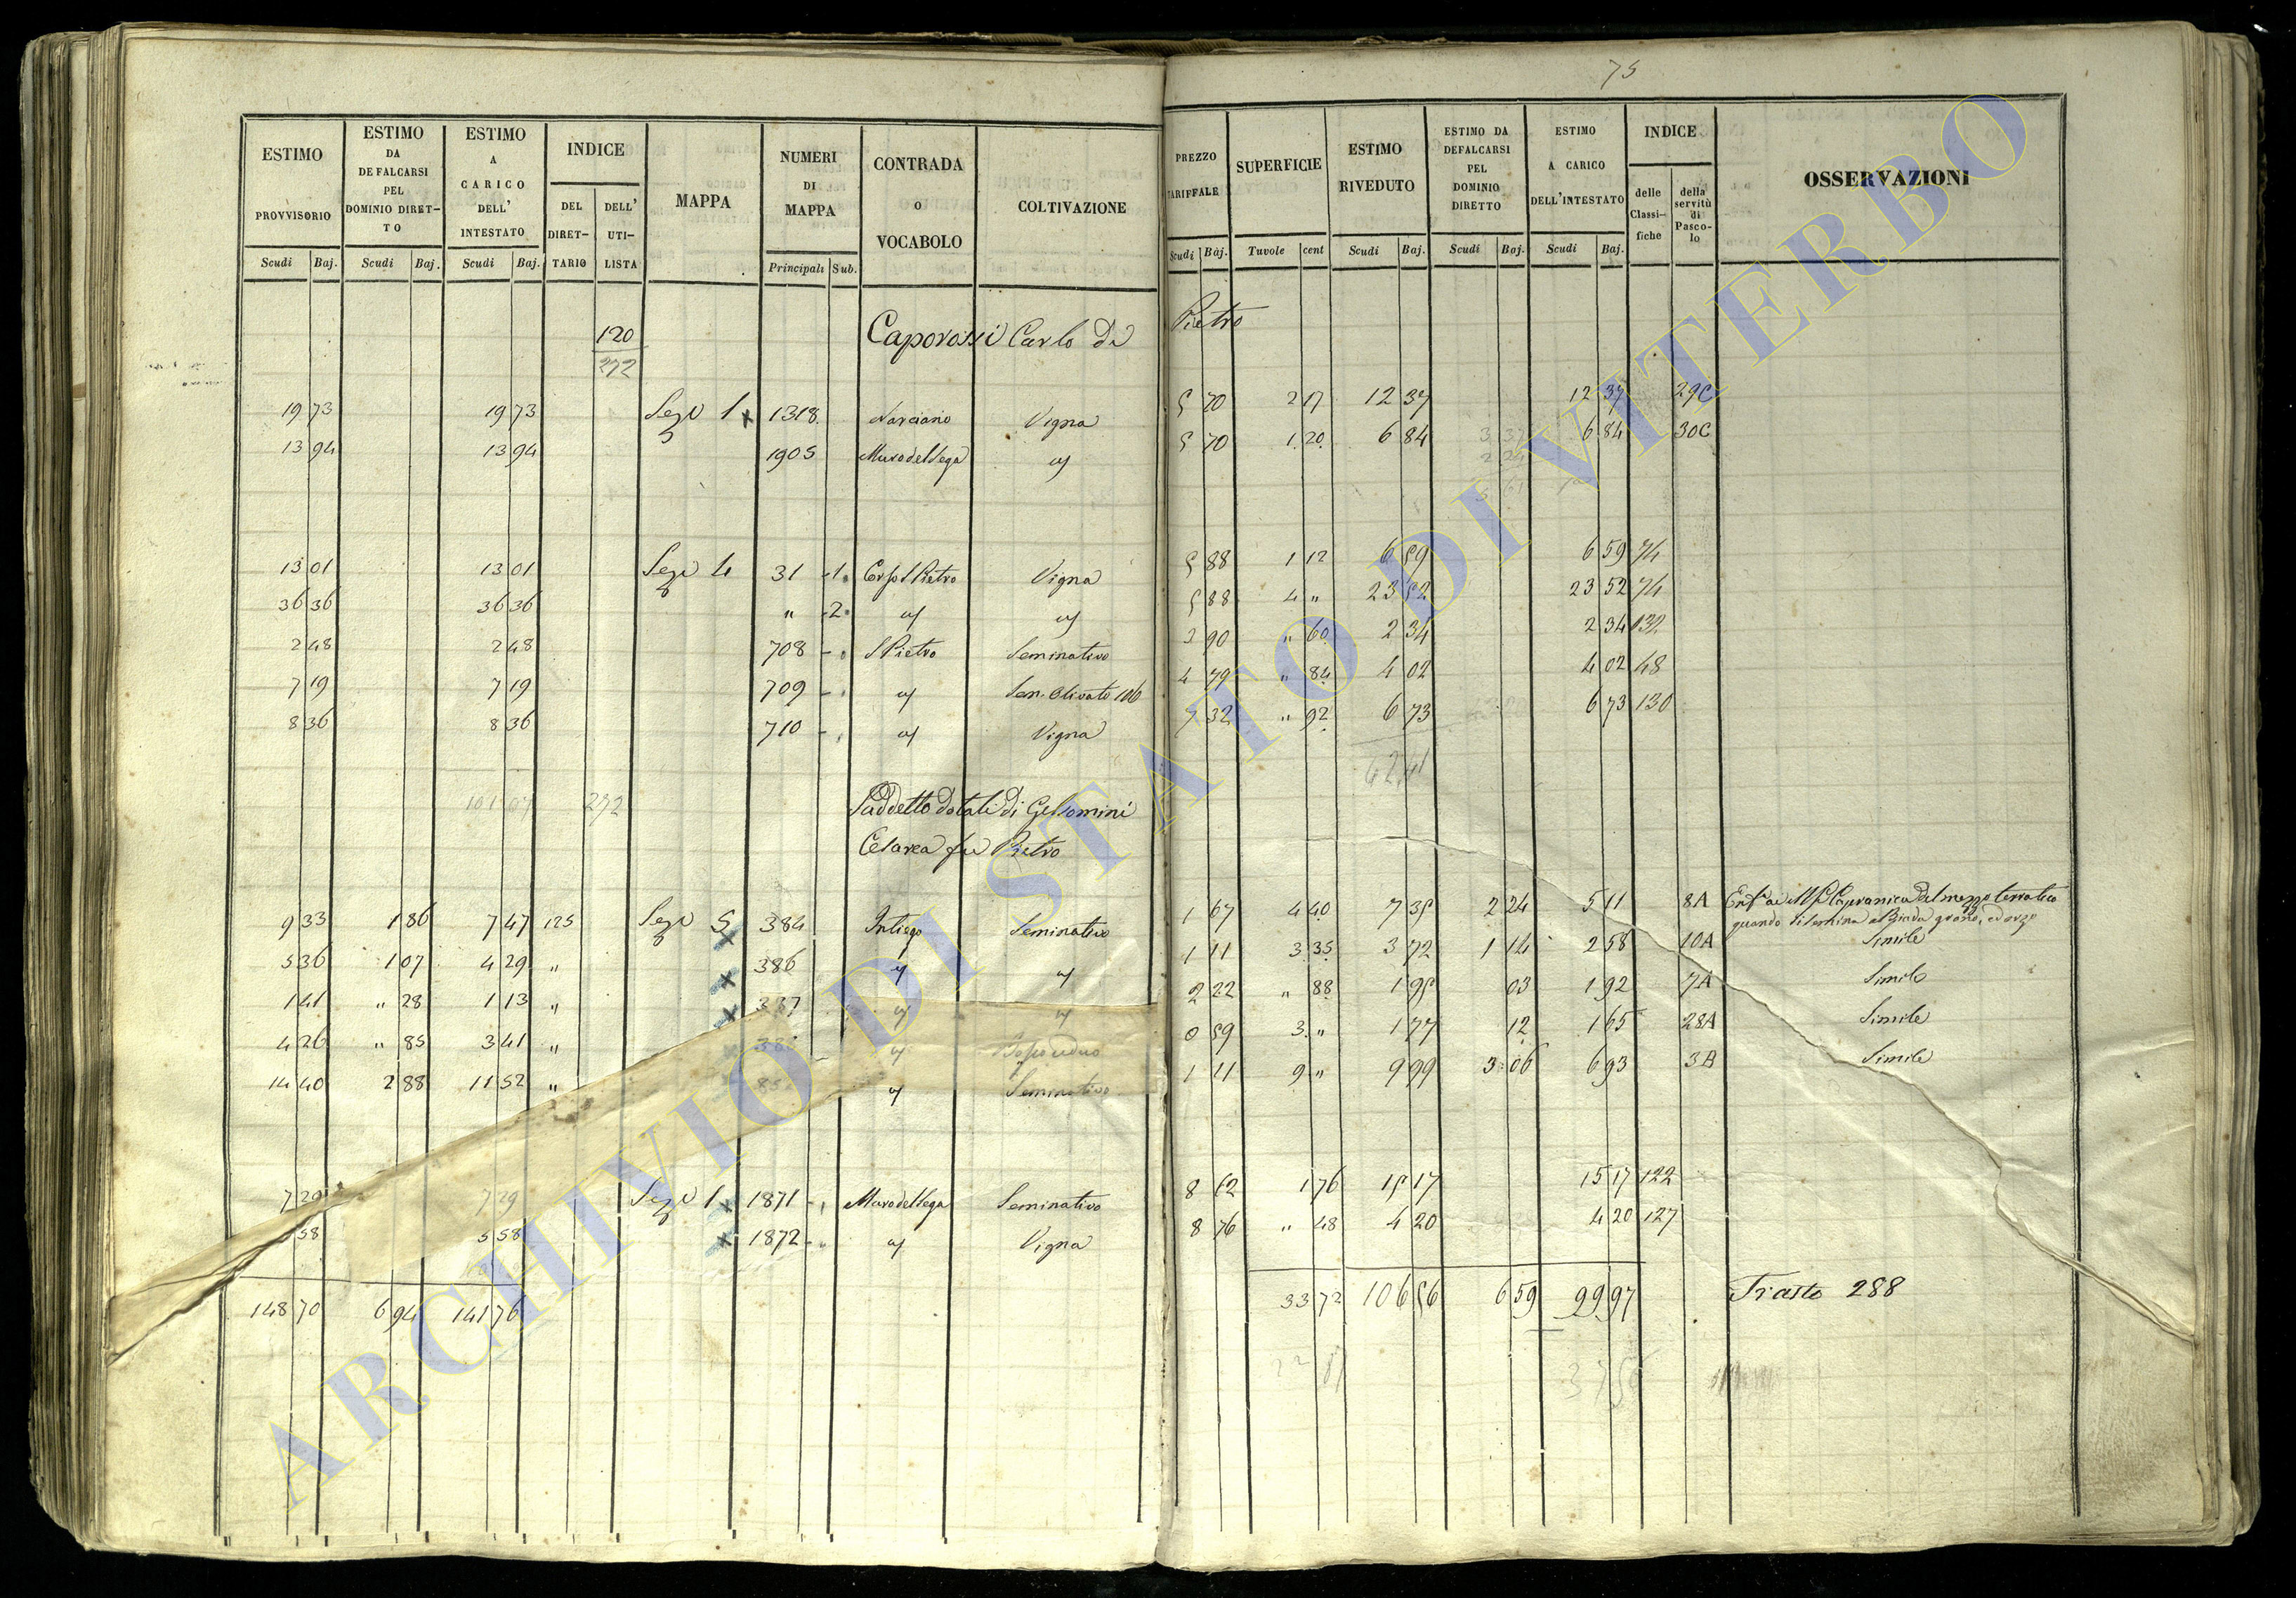 75
ESTIMO PROVVISORIO Scudi Baj. | ESTIMO DA DEFALCARSI PEL DOMINIO DIRET-TO Scudi Baj. | ESTIMO A CARICO DELL' INTESTATO Scudi Baj. | INDICE DEL DIRET-TARIO DELL' UTI-LISTA | MAPPA | NUMERI DI MAPPA Principali Sub. | CONTRADA O VOCABOLO | COLTIVAZIONE | PREZZO TARIFFALE Scudi Baj. | SUPERFICIE Tavole cent | ESTIMO RIVEDUTO Scudi Baj. | ESTIMO DA DEFALCARSI PEL DOMINIO DIRETTO Scudi Baj. | ESTIMO A CARICO DELL'INTESTATO Scudi Baj. | INDICE delle Classi-fiche della servitù di Pasco-lo | OSSERVAZIONI
120 Caporossi Carlo di Pietro
272
19 73 19 73 Sez 1 x 1318 Narciano Vigna 5 70 2 17 12 37 12 37 29C
13 94 13 94 1905 Muro del Sega 5 70 1 20 6 84 6 84 30C
13 01 13 01 Sez 4 31 1 S Pietro Vigna 5 88 1 12 6 59 6 59 74
36 36 36 36 " 2 5 88 4 " 23 52 23 52 74
2 48 2 48 708 S Pietro Seminativo 3 90 " 60 2 34 2 34 132
7 19 7 19 709 Sem. Olivato 4 79 " 84 4 02 4 02 48
8 36 8 36 710 Vigna 7 32 " 92 6 73 6 73 130
62 41
101 07 272 Suddetto dotali di Gelsomini
Cesarea fu Pietro
9 33 1 86 7 47 125 Sez 5 x 384 Intiego Seminativo 1 67 4 40 7 35 2 24 5 11 8A Capranica del mezzo terratico
quando si semina a Biada grano, ed orzo
5 36 1 07 4 29 " x 386 1 11 3 35 3 72 1 14 2 58 10A Simile
1 41 " 28 1 13 " x 387 2 22 " 88 1 95 03 1 92 7A Simile
4 26 " 85 3 41 " x Bosco ceduo 0 59 3 " 1 77 12 1 65 28A Simile
14 40 2 88 11 52 " x Seminativo 1 11 9 " 9 99 3 06 6 93 3A Simile
7 29 7 29 Sez 1 x 1871 Muro del Sega Seminativo 8 62 1 76 15 17 15 17 122
5 58 5 58 x 1872 Vigna 8 76 " 48 4 20 4 20 127
148 70 6 94 141 76 33 72 106 56 6 59 99 97 Trasto 288
ARCHIVIO DI STATO DI VITERBO